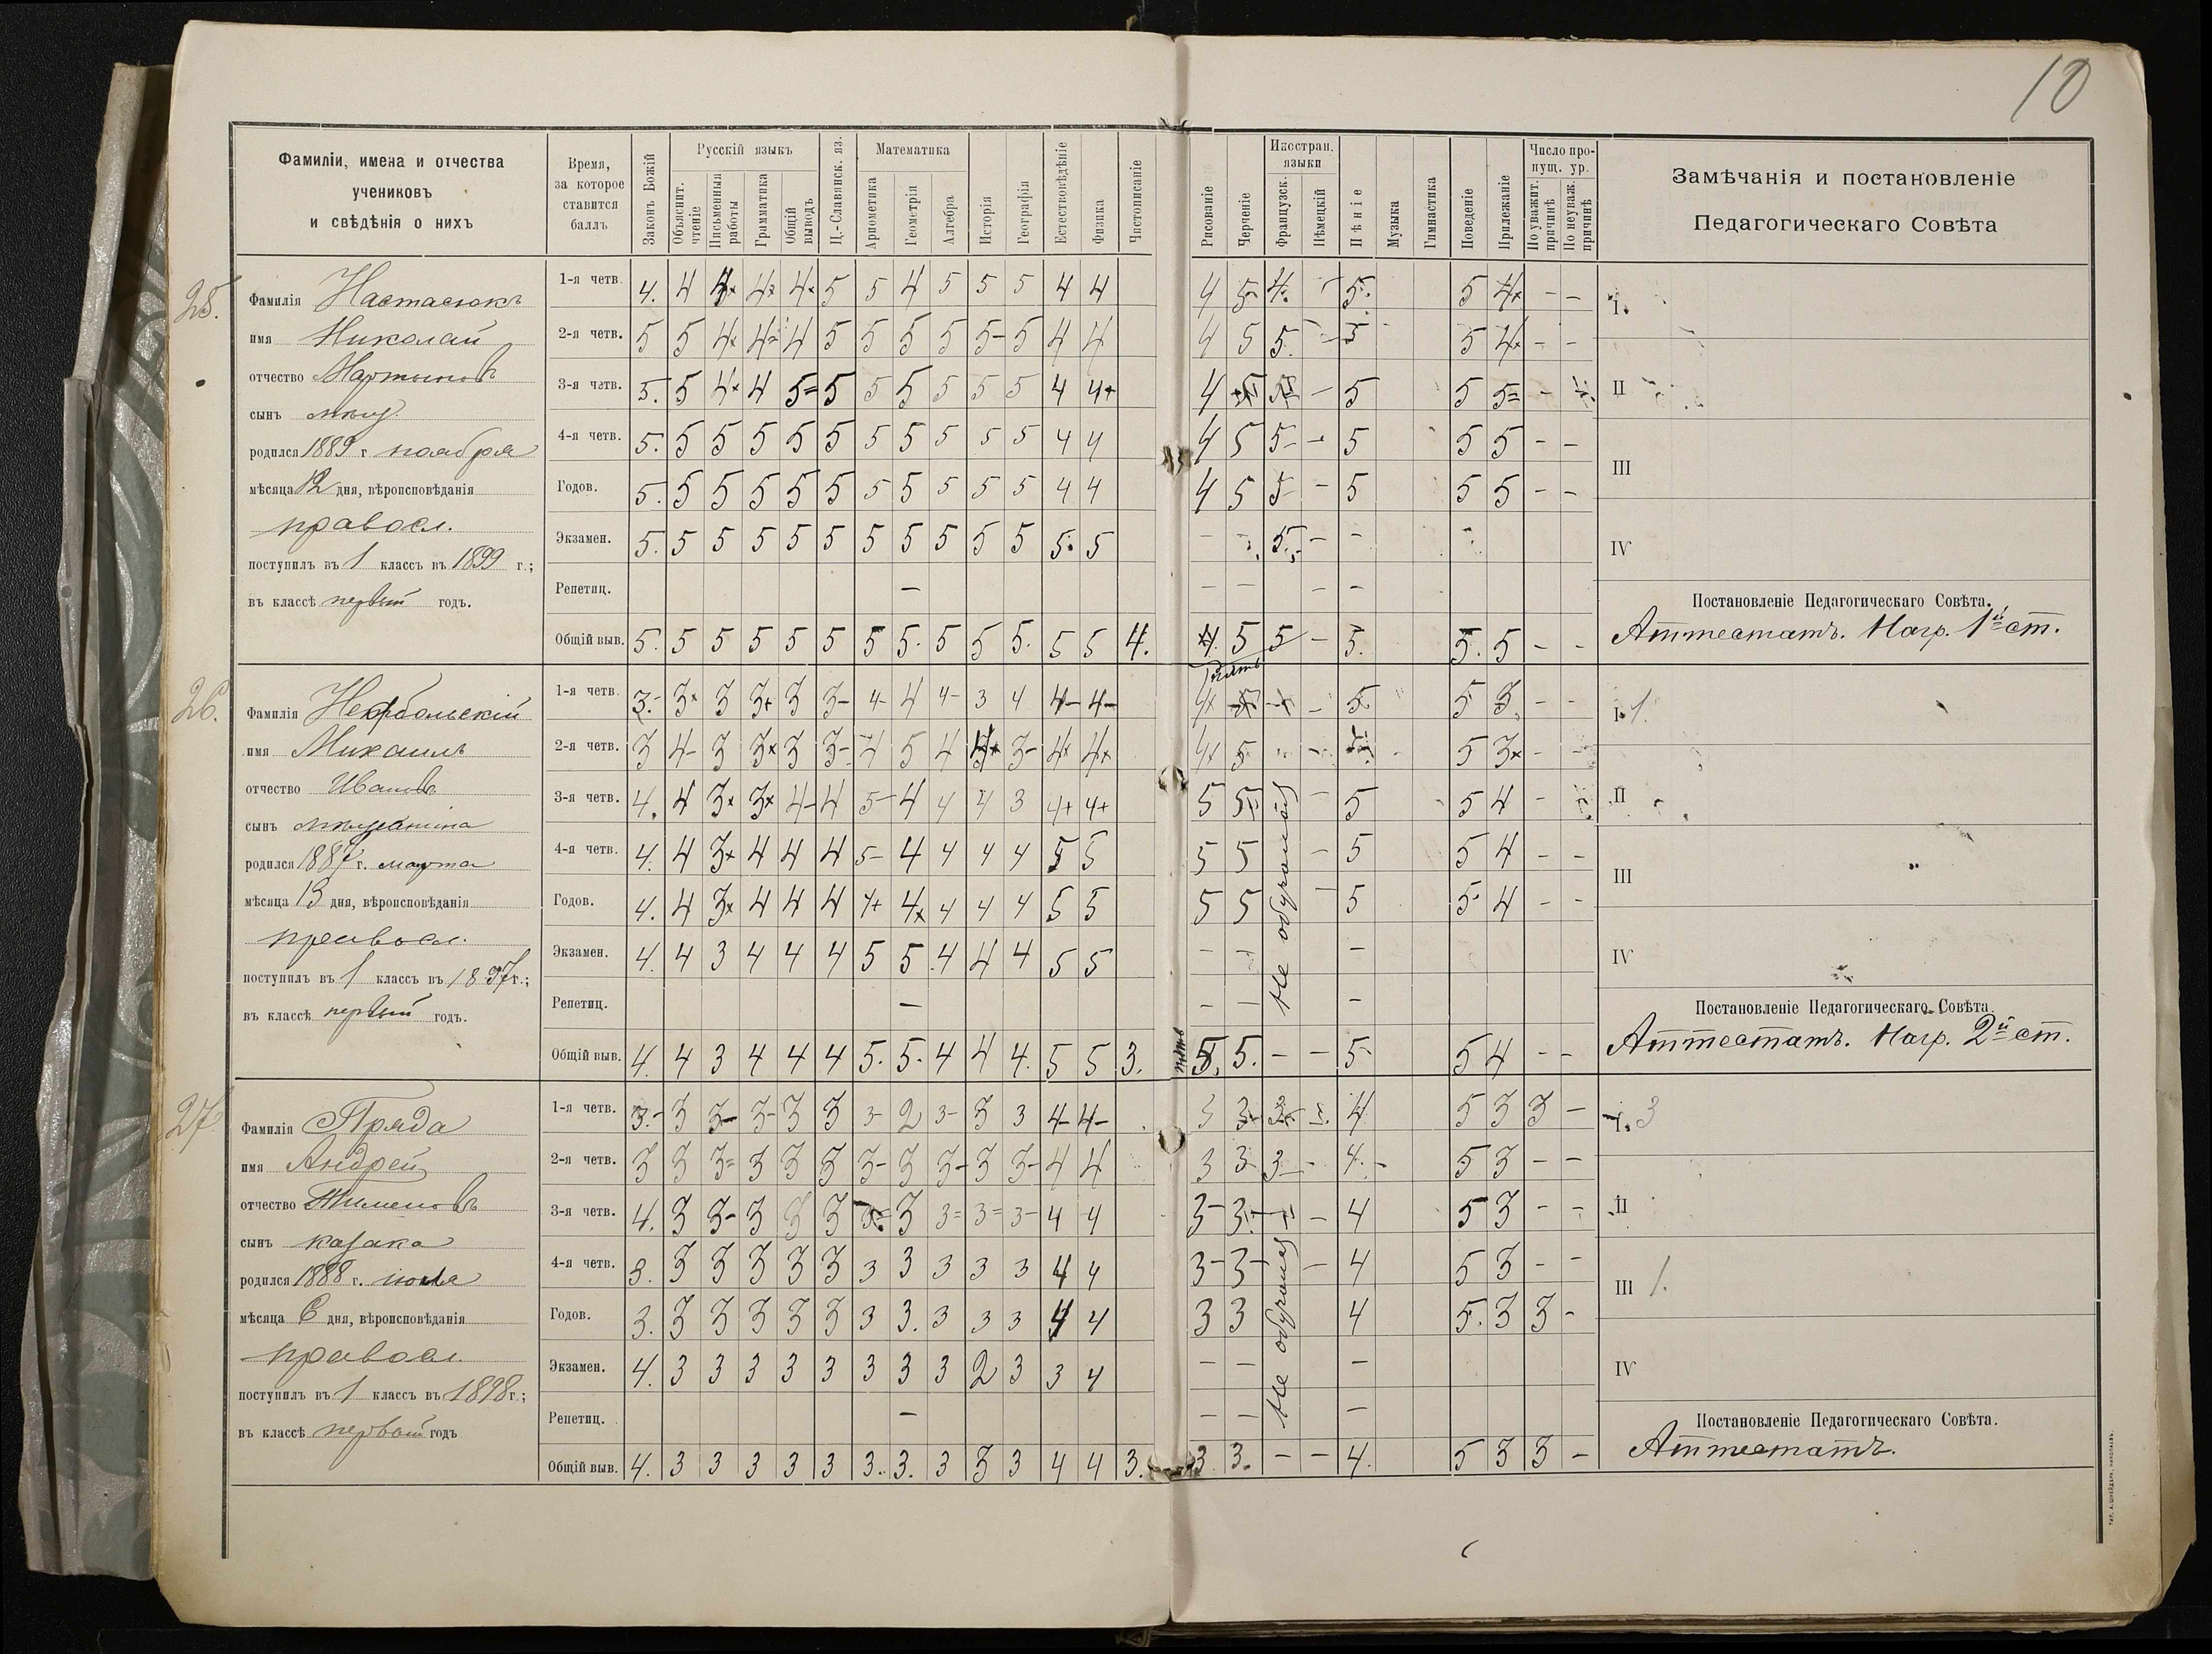 10
Фамиліи, имена и отчества
учениковъ
и свѣдѣнія о нихъ
Время,
за которое
ставится
баллъ
Законъ Божій
Русскій языкъ
Объяснит. чтеніе
Письменныя работы
Грамматика
Общій выводъ
Ц.-Славянск. яз.
Математика
Ариѳметика
Геометрія
Алгебра
Исторія
Географія
Естествовѣдѣніе
Физика
Чистописаніе
Рисованіе
Черченіе
Иностран. языки
Французск.
Нѣмецкій
Пѣніе
Музыка
Гимнастика
Поведеніе
Прилежаніе
Число пропущ. ур.
По уважит. причинѣ
По неуваж. причинѣ
Замѣчанія и постановленіе
Педагогическаго Совѣта
25.
Фамилія Настасюкъ
имя Николай
отчество Мартыновъ
сынъ мѣщ.
родился 1889 г. ноября
мѣсяца 12 дня, вѣроисповѣданія
правосл.
поступилъ въ 1 классъ въ 1899 г.;
въ классѣ первый годъ.
1-я четв. 4. 4 4× 4× 4× 5 5 4 5 5 5 4 4 4 5- 4. - 5. 5 4× - -
2-я четв. 5 5 4× 4= 4 5 5 5 5 5- 5 4 4 4 5 5. - 5 5 4× - -
3-я четв. 5. 5 4× 4 5= 5 5 5 5 5 5 4 4+ 4 - 5 5 5= -
4-я четв. 5. 5 5 5 5 5 5 5 5 5 5 4 4 4 5 5- - 5 5 5 - -
Годов. 5. 5 5 5 5 5 5 5 5 5 5 4 4 4 5 5- - 5 5 5 - -
Экзамен. 5. 5 5 5 5 5 5 5 5 5 5 5. 5 - - 5. - -
Репетиц. - - - - -
Общій выв. 5. 5 5 5 5 5 5 5. 5 5 5. 5 5 4. 4. 5 5 - 5. 5. 5 - -
I.
II
III
IV
Постановленіе Педагогическаго Совѣта.
Аттестатъ. Нагр. 1й ст.
26.
Фамилія
имя Михаилъ
отчество Ивановъ
сынъ мѣщанина
родился 1887 г. марта
мѣсяца 13 дня, вѣроисповѣданія
правосл.
поступилъ въ 1 классъ въ 1897 г.;
въ классѣ первый годъ.
1-я четв. 3.- 3× 3 3+ 3 3- 4- 4 4- 3 4 4- 4- 4× - 5. 5 3. - -
2-я четв. 3 4- 3 3× 3 3- 4 5 4 3- 4× 4× 4× 5 5 3× -
3-я четв. 4. 4 3× 3× 4- 4 5- 4 4 4 3 4+ 4+ 5 5 - 5 5 4 -
4-я четв. 4. 4 3× 4 4 4 5- 4 4 4 4 5 5 5 5 - 5 5 4 - -
Годов. 4. 4 3× 4 4 4 4+ 4× 4 4 4 5 5 5 5 - 5 5 4 - -
Экзамен. 4. 4 3 4 4 4 5 5 4 4 4 5 5 - - -
Репетиц. - - - -
Общій выв. 4. 4 3 4 4 4 5. 5. 4 4 4. 5 5 3. 5. 5. - - 5- 5 4 - -
Не обучался
пять
I. 1.
II
III
IV
Постановленіе Педагогическаго Совѣта.
Аттестатъ. Нагр. 2й ст.
27.
Фамилія Пряда
имя Андрей
отчество
сынъ казака
родился 1888 г. іюля
мѣсяца 6 дня, вѣроисповѣданія
правосл.
поступилъ въ 1 классъ въ 1898 г.;
въ классѣ первый годъ
1-я четв. 3.- 3 3- 3- 3 3 3- 2 3- 3 3 4- 4- 3 3- 4 5 3 3 -
2-я четв. 3 3 3= 3 3 3 3- 3 3- 3 3- 4 4 3 3 3- - 4.- 5 3 - -
3-я четв. 4. 3 3- 3 3 3 3 3= 3= 3- 4 4 3- 3- - 4 5 3 - -
4-я четв. 3. 3 3 3 3 3 3 3 3 3 3 4 4 3- 3- - 4 5 3 - -
Годов. 3. 3 3 3 3 3 3 3. 3 3 3 4 4 3 3 4 5. 3 3 -
Экзамен. 4. 3 3 3 3 3 3 3 3 2 3 3 4 - - -
Репетиц. - - - -
Общій выв. 4. 3 3 3 3 3 3. 3. 3 3 3 4 4 3. 3. 3. - - 4. 5 3 3 -
Не обучался
I. 3
II
III 1.
IV
Постановленіе Педагогическаго Совѣта.
Аттестатъ.